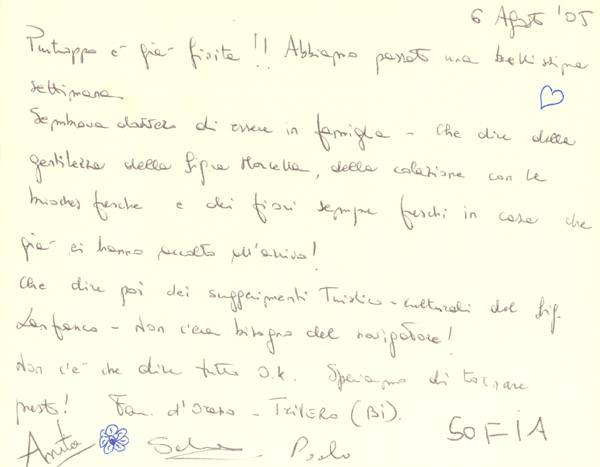 6 Agosto '05
Purtroppo è già finita!! Abbiamo passato una bellissima
settimana.
Sembrava davvero di essere in famiglia - Che dire della
gentilezza della Sig.ra Marcella, della colazione con le
brioches fresche e dei fiori sempre freschi in casa che
già ci hanno accolto all'arrivo!
Che dire poi dei suggerimenti Turistico-culturali del Sig.
Lanfranco - Non c'era bisogno del navigatore!
Non c'è che dire tutto O.K. Speriamo di tornare
presto! Fam. d'Orazio - TRIVERO (BI).
SOFIA
Anita Paolo